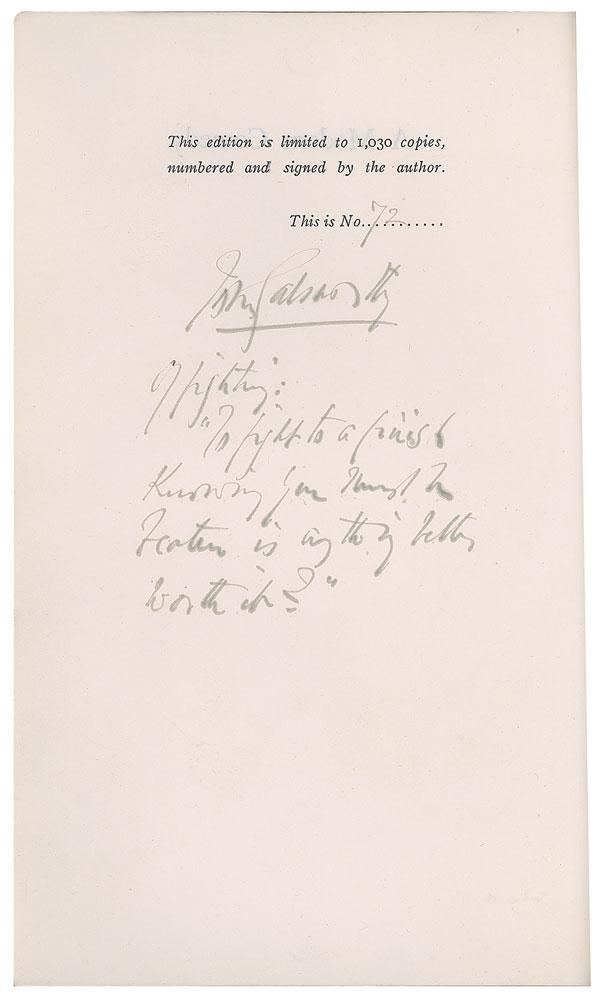 This edition is limited to 1,030 copies,
numbered and signed by the author.
This is No. 72
John Galsworthy
Of fighting:
"To fight to a finish
Knowing you must be
beaten is anything better
worth it?"